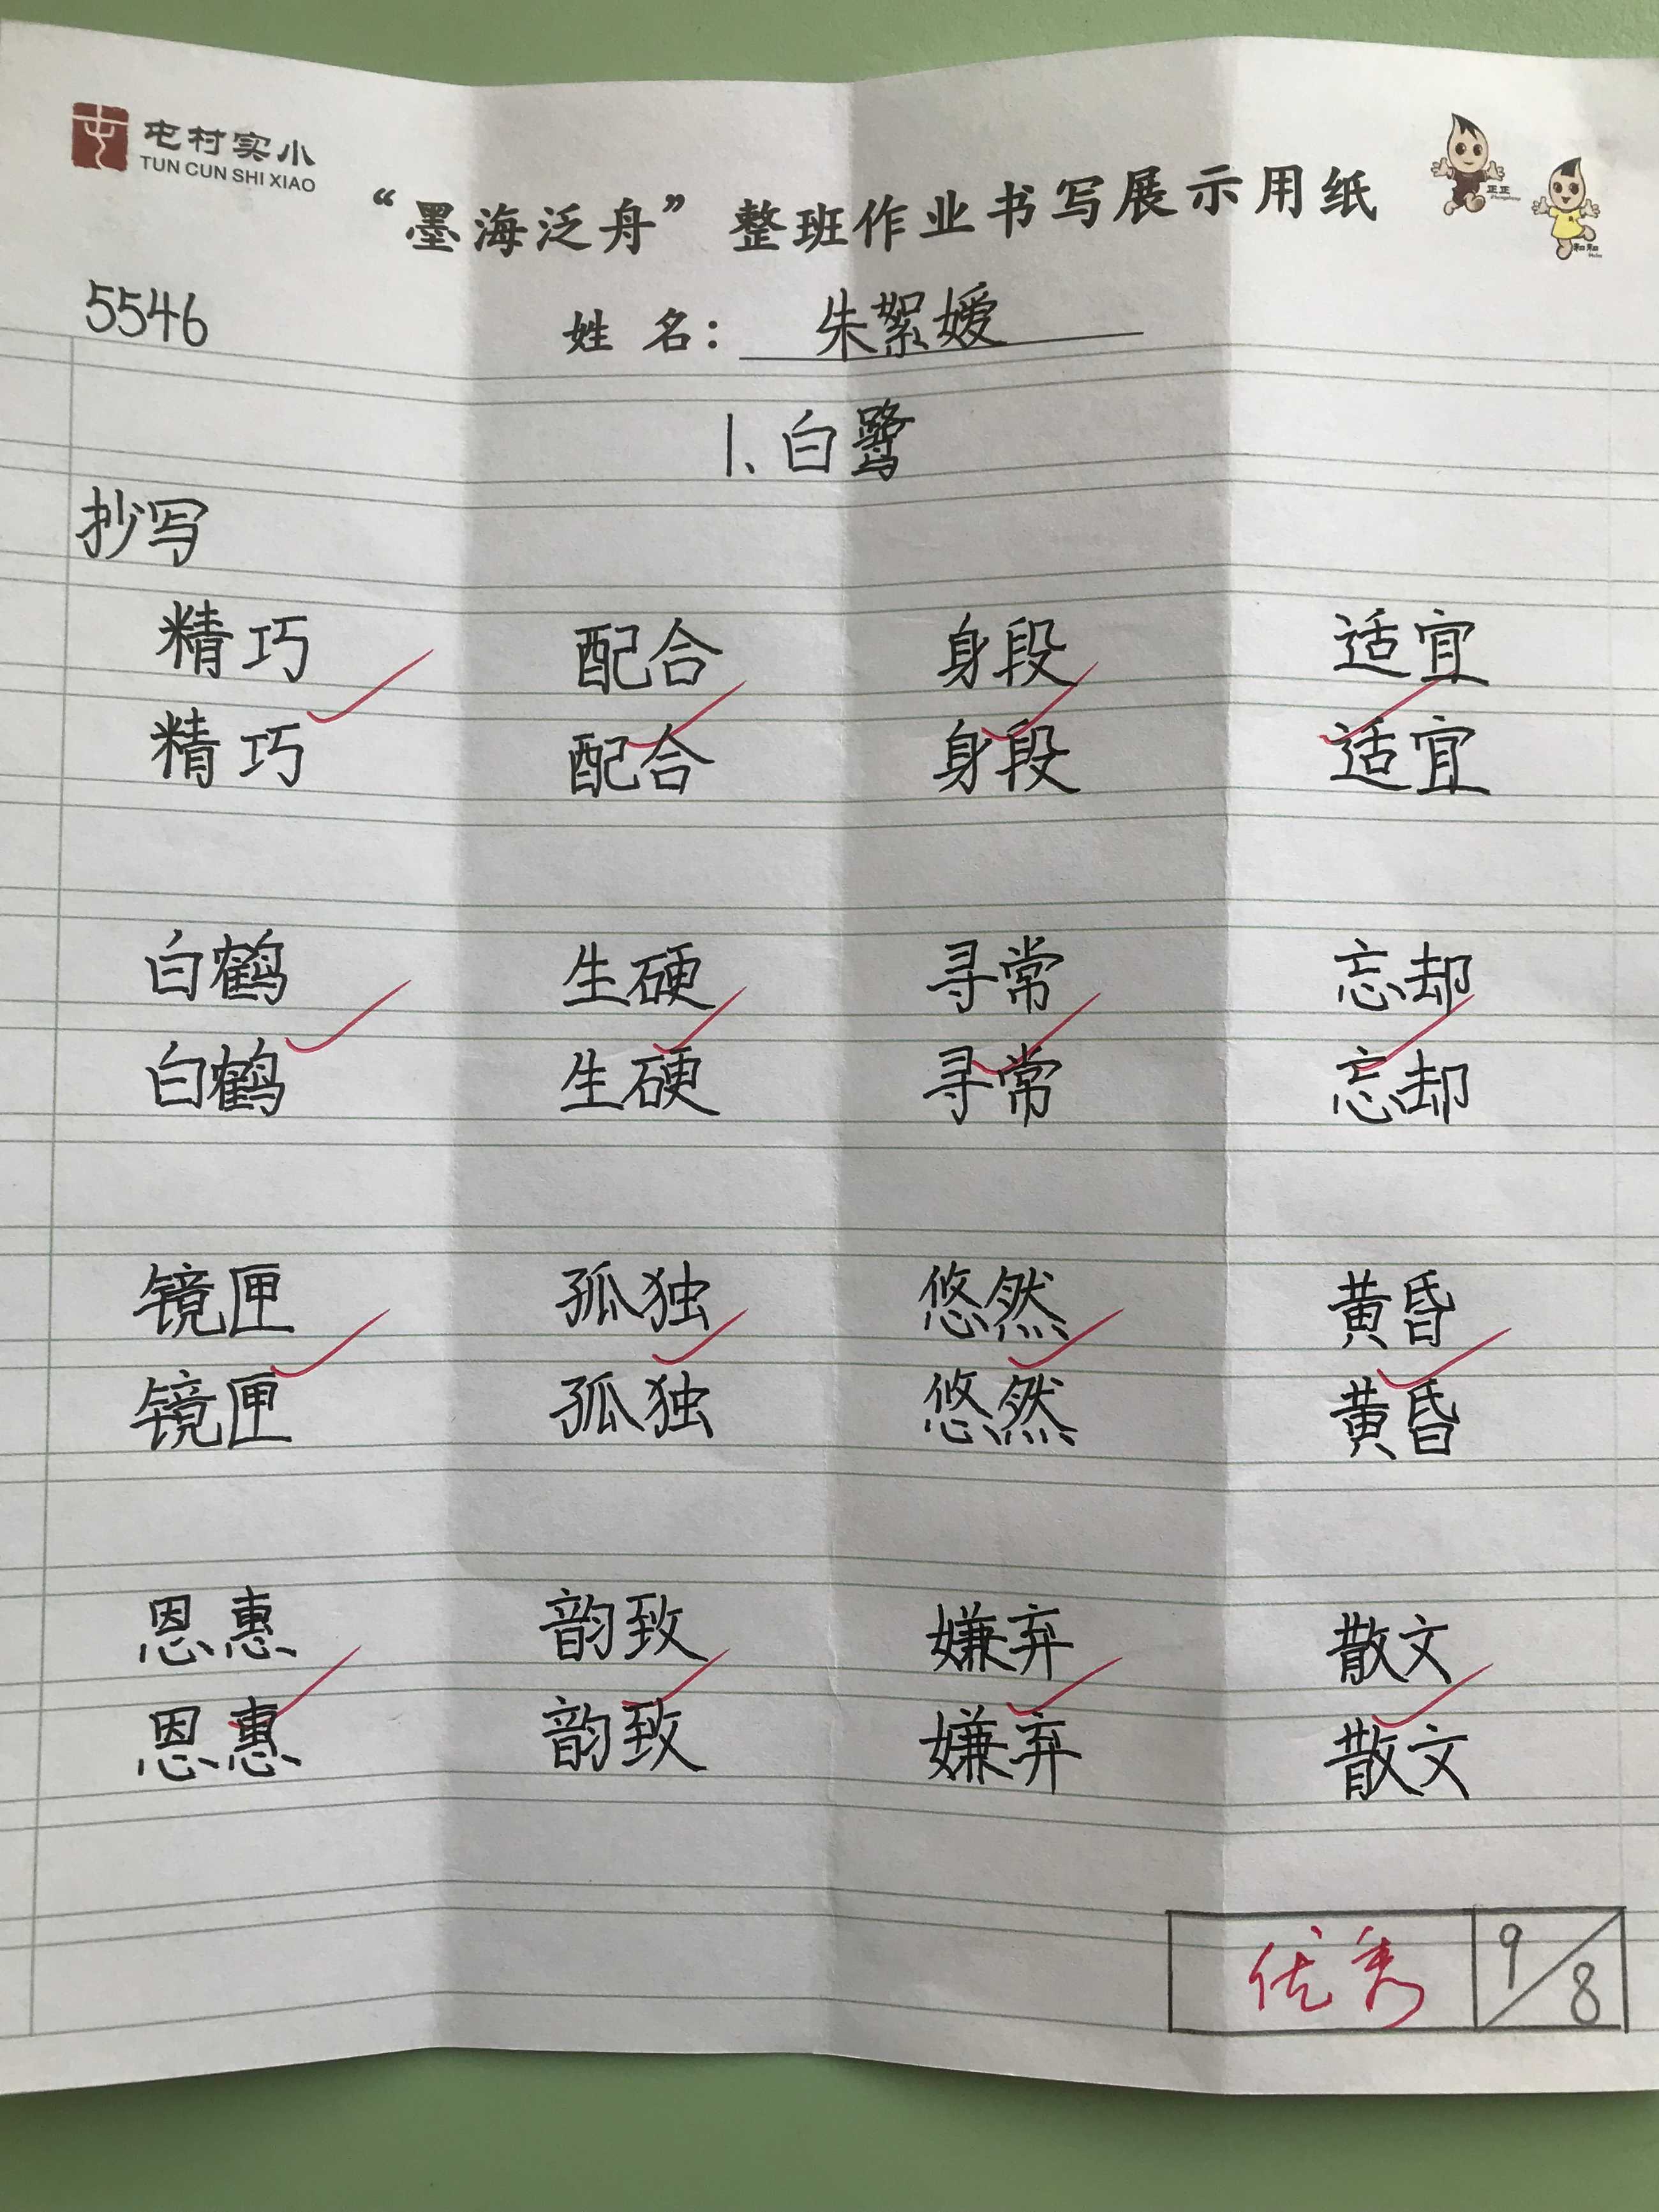 屯村实小
TUN CUN SHI XIAO
“墨海泛舟”整班作业书写展示用纸
正正
和和
5546 姓 名： 朱絮嫒
1、白鹭
抄写
精巧 配合 身段 适宜
精巧 配合 身段 适宜
白鹤 生硬 寻常 忘却
白鹤 生硬 寻常 忘却
镜匣 孤独 悠然 黄昏
镜匣 孤独 悠然 黄昏
恩惠 韵致 嫌弃 散文
恩惠 韵致 嫌弃 散文
优秀 9/8